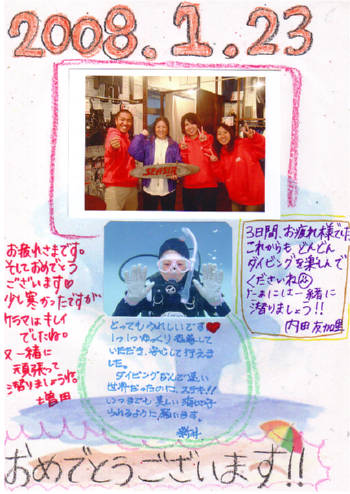 2008.1.23
SEASIR
お疲れさまです。
そしておめでとう
ございます♡
少し寒かったですが
ケラマはキレイ
でしたね。
又一緒に
頑張って
潜りましょうね。
増田
3日間、お疲れ様でした
これからも どんどん
ダイビングを楽しんで
くださいね
たまには一緒に
潜りましょう!!
内田友加里
とってもうれしいです♥
1つ1つゆっくり
いただき、安心して行えま
した。
ダイビングなんて遠い
世界だったのに、ステキ!!
いつまでも美しい海に
られるように願います。
おめでとうございます!!